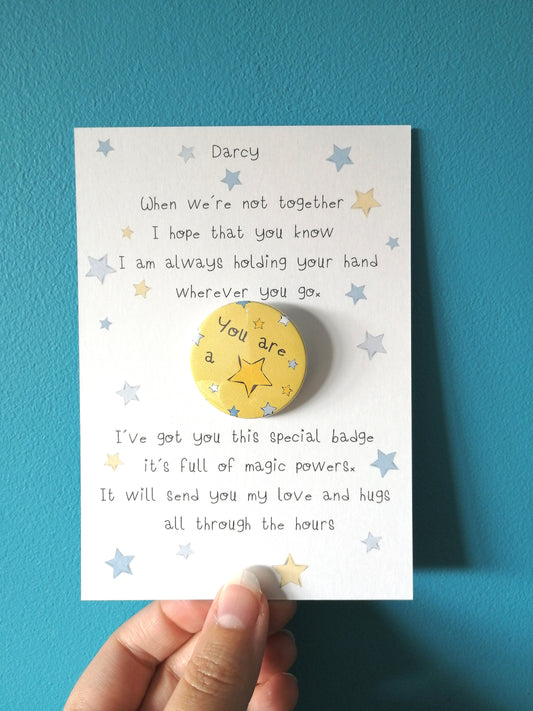 Darcy
When we're not together
I hope that you know
I am always holding your hand
wherever you gox
You are
a
I've got you this special badge
it's full of magic powersx
It will send you my love and hugs
all through the hours